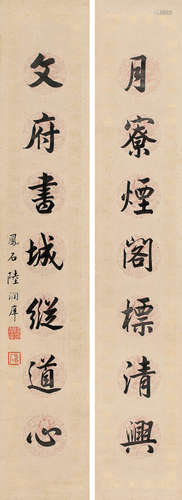 月寮煙閣標清興
文府書城縱道心
鳳石陸潤庠